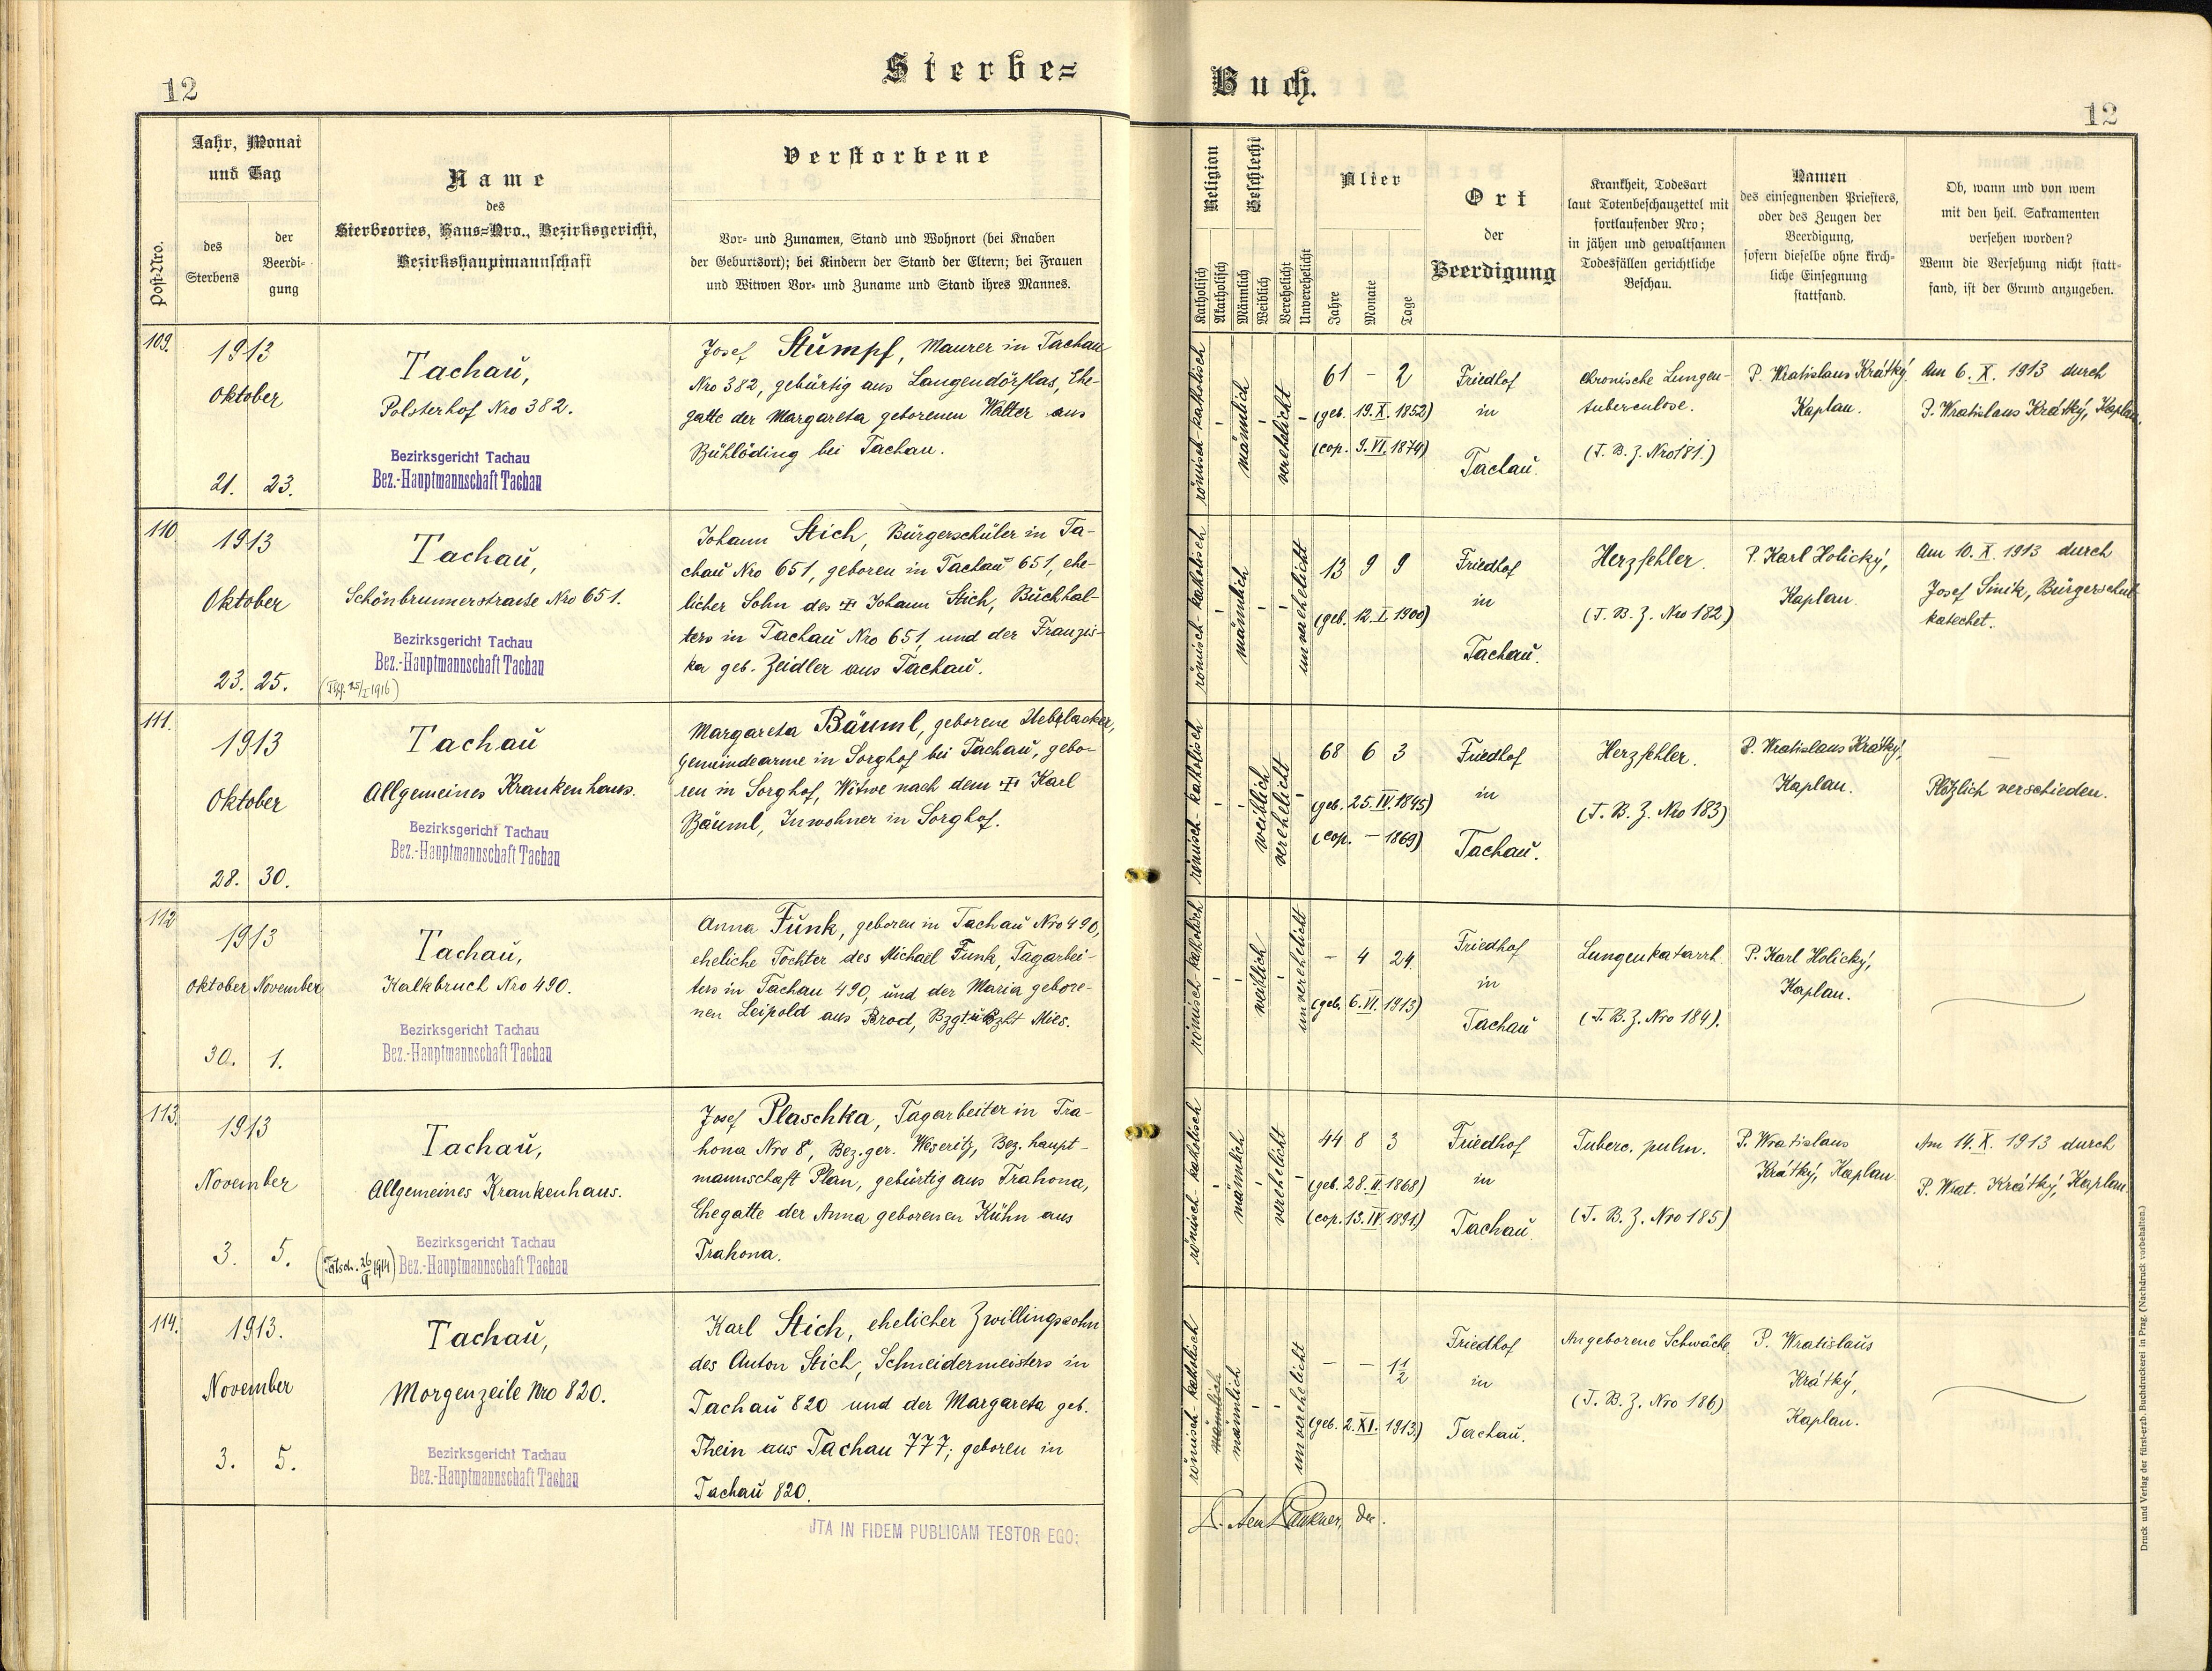 12
Sterbe=
Buch.
12
Post-Nro.
Jahr, Monat
und Tag
des
Sterbens
der
Beerdi-
gung
Name
des
Sterbeortes, Haus-Nro., Bezirksgericht,
Bezirkshauptmannschaft
Verstorbene
Vor- und Zunamen, Stand und Wohnort (bei Knaben
der Geburtsort); bei Kindern der Stand der Eltern; bei Frauen
und Witwen Vor- und Zuname und Stand ihres Mannes.
Religion
Katholisch
Akatholisch
Geschlecht
Männlich
Weiblich
Verehelicht
Unverehelicht
Alter
Jahre
Monate
Tage
Ort
der
Beerdigung
Krankheit, Todesart
laut Totenbeschauzettel mit
fortlaufender Nro;
in jähen und gewaltsamen
Todesfällen gerichtliche
Beschau.
Namen
des einsegnenden Priesters,
oder des Zeugen der
Beerdigung,
sofern dieselbe ohne kirch-
liche Einsegnung
stattfand.
Ob, wann und von wem
mit den heil. Sakramenten
versehen worden?
Wenn die Versehung nicht statt-
fand, ist der Grund anzugeben.
109.
1913
Oktober
21. 23.
Tachau,
Polsterhof Nro 382.
Bezirksgericht Tachau
Bez.-Hauptmannschaft Tachau
Josef Stumpf, Maurer in Tachau
Nro 382, gebürtig aus Langendörflas, Ehe-
gatte der Margareta geborenen Walter aus
Bühlöding bei Tachau.
römisch-katholisch
-
männlich
-
verehelicht
-
61 - 2
(geb. 19. X. 1852)
(cop. 9. VI. 1874)
Friedhof
in
Tachau.
Chronische Lungen-
tuberculose.
(T. B. Z. Nro 181.)
P. Wratislaus Krátký
Kaplan.
Am 6. X. 1913 durch
P. Wratislaus Krátký, Kaplan.
110.
1913
Oktober
23. 25.
Tachau,
Schönbrunnerstrasse Nro 651.
Bezirksgericht Tachau
Bez.-Hauptmannschaft Tachau
25/I 1916)
Johann Stich, Bürgerschüler in Ta-
chau Nro 651, geboren in Tachau 651, ehe-
licher Sohn des ✝ Johann Stich, Buchhal-
ters in Tachau Nro 651, und der Franzis-
ka geb. Zeidler aus Tachau.
römisch-katholisch
-
männlich
-
-
unverehelicht
13 9 9
(geb. 12. I. 1900)
Friedhof
in
Tachau.
Herzfehler.
(T. B. Z. Nro 182)
P. Karl Holický,
Kaplan.
Am 10. X. 1913 durch
Josef Sinik, Bürgerschul-
katechet.
111.
1913
Oktober
28. 30.
Tachau
Allgemeines Krankenhaus.
Bezirksgericht Tachau
Bez.-Hauptmannschaft Tachau
Margareta Bäuml, geborene Ueblacker,
Gemeindearme in Sorghof bei Tachau, gebo-
ren in Sorghof, Witwe nach dem ✝ Karl
Bäuml, Inwohner in Sorghof.
römisch-katholisch
-
-
weiblich
verehelicht
-
68 6 3
(geb. 25. IV. 1845)
(cop. - 1869)
Friedhof
in
Tachau.
Herzfehler.
(T. B. Z. Nro 183)
P. Wratislaus Krátký,
Kaplan.
—
Plötzlich verschieden.
112
1913
Oktober November
30. 1.
Tachau,
Kalkbruch Nro 490.
Bezirksgericht Tachau
Bez.-Hauptmannschaft Tachau
Anna Funk, geboren in Tachau Nro 490,
eheliche Tochter des Michael Funk, Tagarbei-
ters in Tachau 490, und der Maria gebore-
nen Leipold aus Brod, Bzgt. u. Bzht Mies.
römisch-katholisch
-
-
weiblich
-
unverehelicht
- 4 24
(geb. 6. VI. 1913)
Friedhof
in
Tachau
Lungenkatarrh.
(T. B. Z. Nro 184).
P. Karl Holický,
Kaplan.
113.
1913
November
3. 5.
Tachau,
Allgemeines Krankenhaus.
Bezirksgericht Tachau
Bez.-Hauptmannschaft Tachau
1914)
Josef Plaschka, Tagarbeiter in Tra-
hona Nro 8, Bez.ger. Weseritz, Bez. haupt-
mannschaft Plan, gebürtig aus Trahona,
Ehegatte der Anna geborenen Kühn aus
Trahona.
römisch-katholisch
-
männlich
-
verehelicht
-
44 8 3
(geb. 28. II. 1868)
(cop. 13. IV. 1891.)
Friedhof
in
Tachau
Tuberc. pulm.
(T. B. Z. Nro 185)
P. Wratislaus
Krátký, Kaplan
Am 14. X. 1913 durch
P. Wrat. Krátký, Kaplan
114.
1913.
November
3. 5.
Tachau,
Morgenzeile Nro 820.
Bezirksgericht Tachau
Bez.-Hauptmannschaft Tachau
Karl Stich, ehelicher Zwillingssohn
des Anton Stich, Schneidermeisters in
Tachau 820 und der Margareta geb.
Thein aus Tachau 777; geboren in
Tachau 820.
römisch-katholisch
männlich
männlich
-
-
unverehelicht
- - 1 1/2
(geb. 2. XI. 1913.)
Friedhof
in
Tachau.
Angeborene Schwäche
(T. B. Z. Nro 186)
P. Wratislaus
Krátký,
Kaplan.
JTA IN FIDEM PUBLICAM TESTOR EGO:
Druck und Verlag der fürst-erzb. Buchdruckerei in Prag. (Nachdruck vorbehalten.)